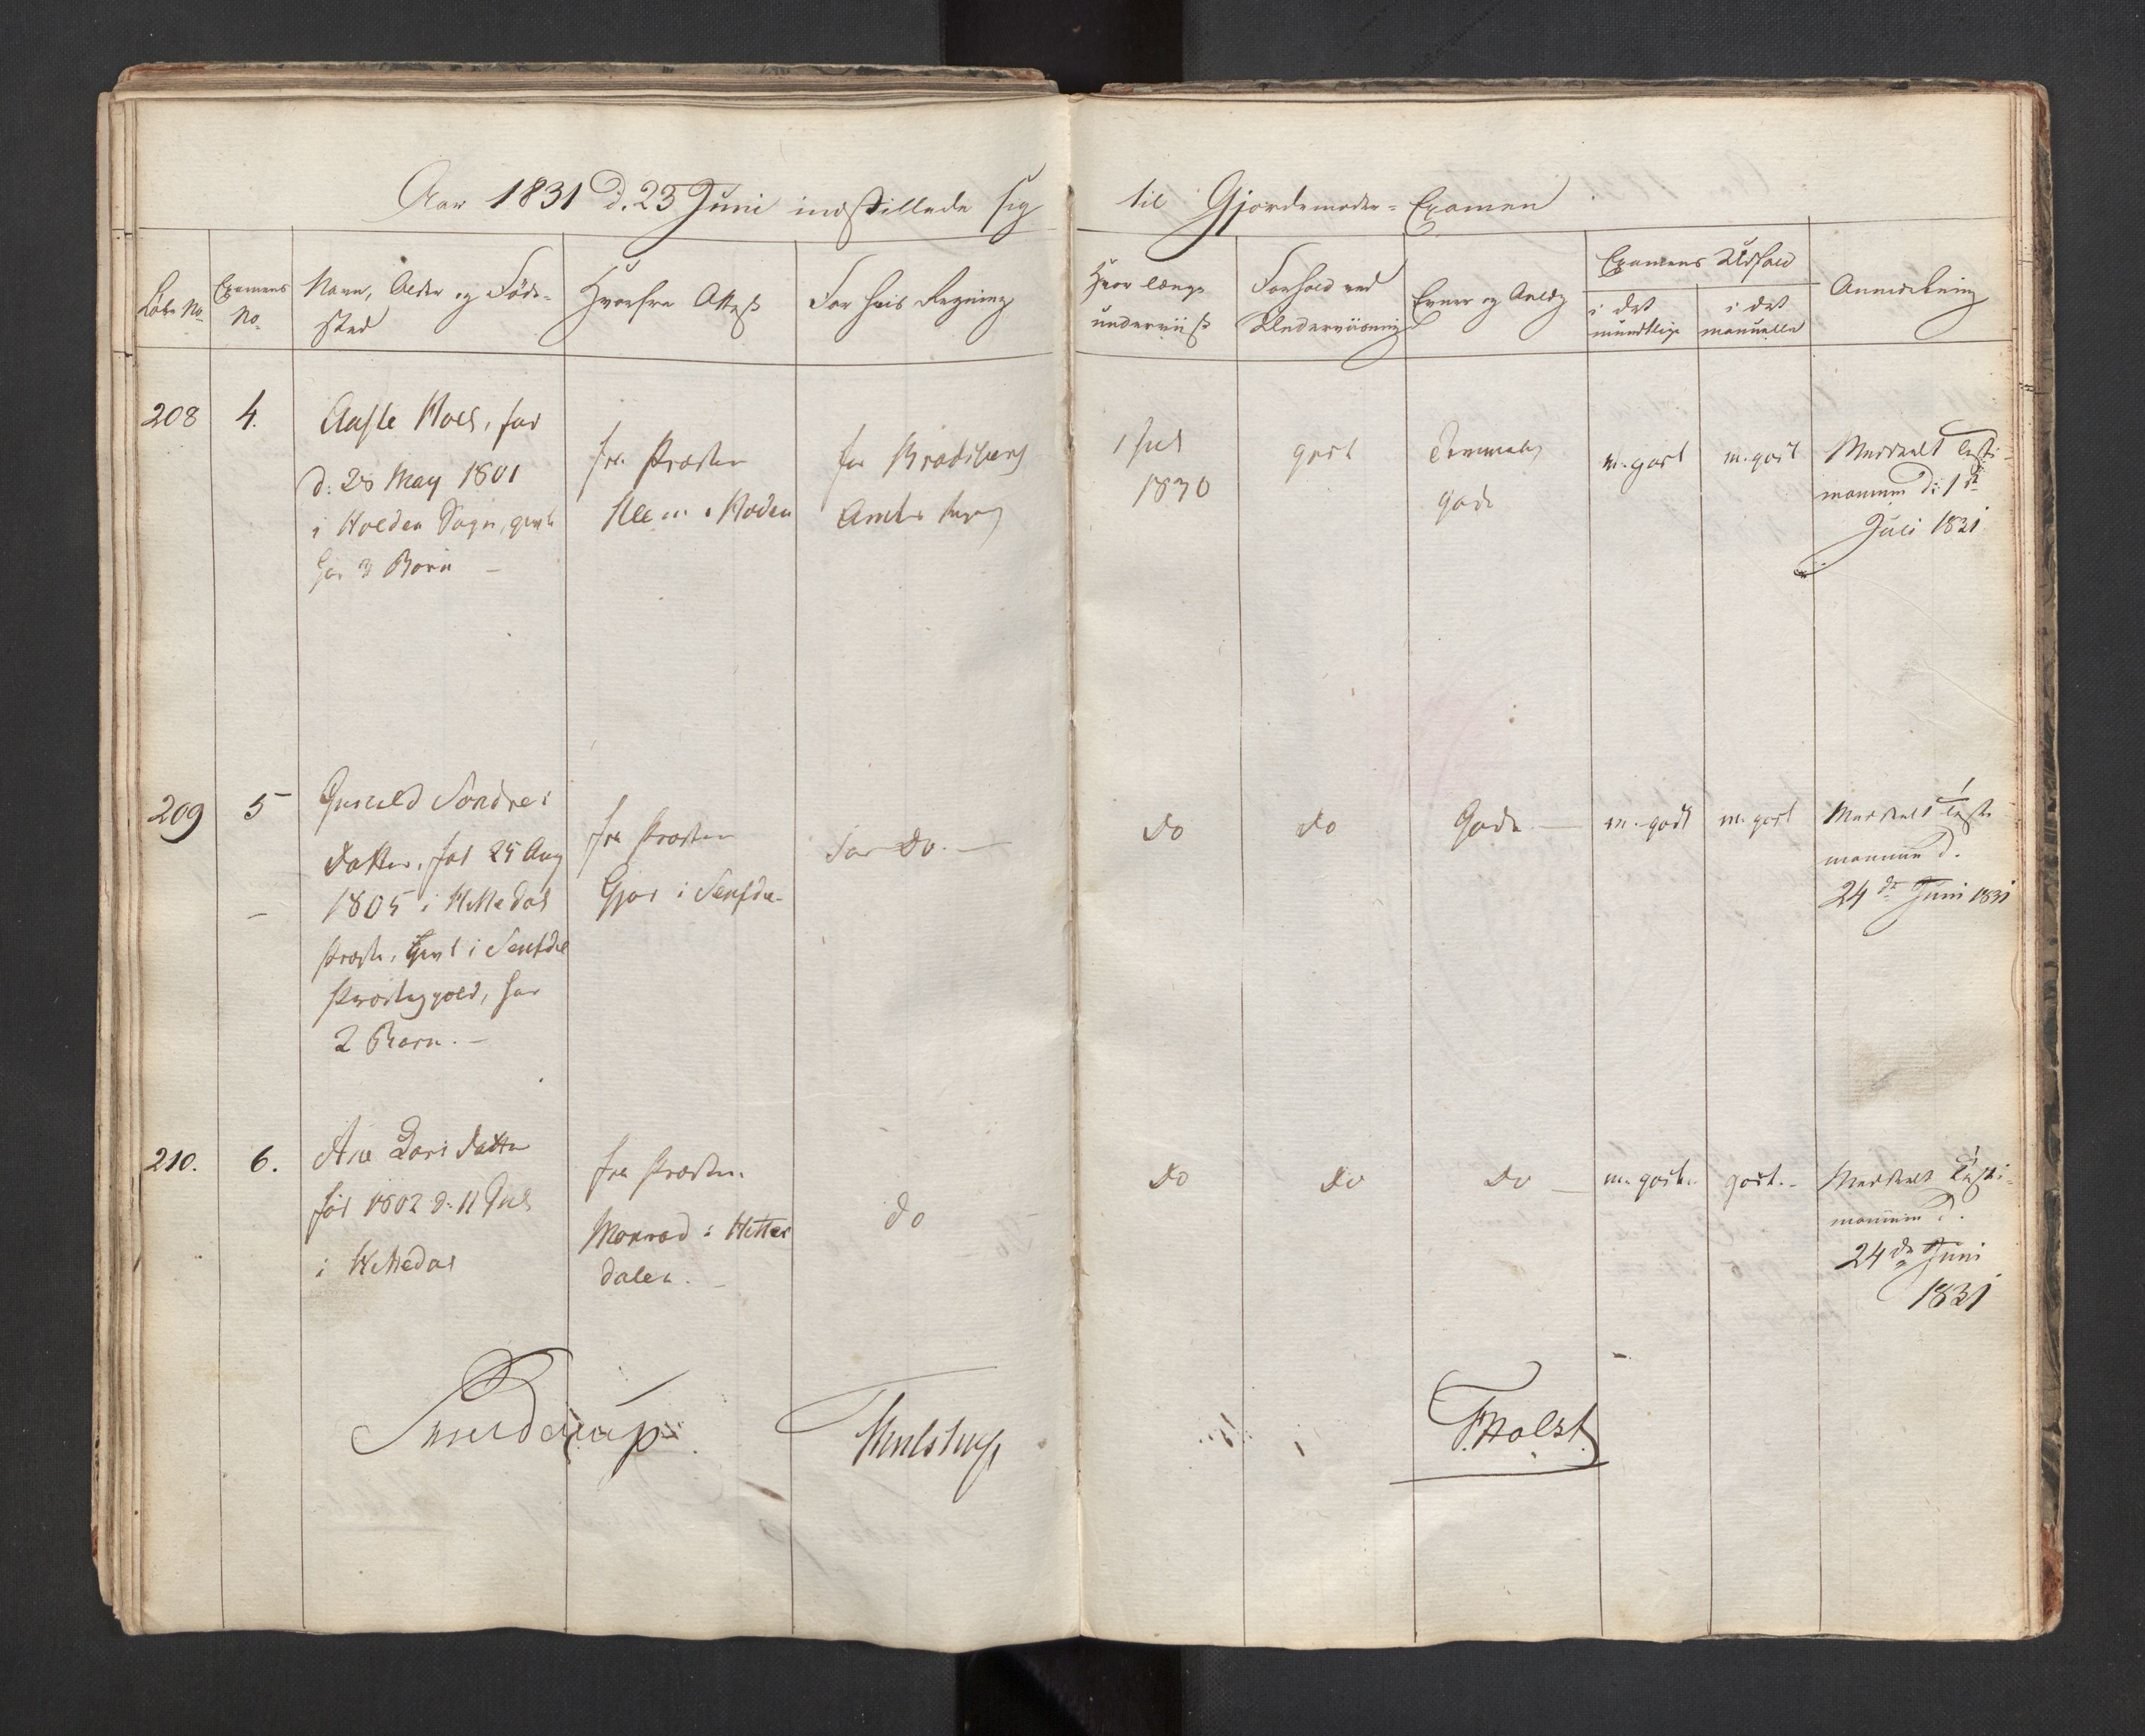 Aar 1831 d. 23 Juni indstillede sig til Gjordemoder-Examen
Løbe No
Examens No.
Navn, Alder og Føde-
sted
Hvorfra Attest
For hvis Regning
Hvor længe
underviist
Forhold ved
Underviisning
Evner og Anlæg
Examens Udfald
i det
mundtlige
i det
manuelle
Anmærkning
208
4.
Aasle Moes, født
d: 28 May 1801
i Holden Sogn, givt
har 3 Børn –
fra Præsten
i Holden
for Bradsberg
Amts Regning
1 Juli
1830
godt
temmelig
gode
m. godt
m. godt
Meddeelt Testi-
monium d: 1ste
Juli 1831
209
5
Gunild Sondres
Datter, født 25 Aug
1805 i Hitterdal
Præste, givt i Saufde
Præstegjeld, har
2 Børn. –
fra Præsten
i Saufde.
For Do. –
Do
Do
Gode. –
m. godt
m. godt
Meddeelt Testi-
monium d.
24de Juni 1831
210.
6.
Ane Lars datter
født 1802 d. 11 Juli
i Hitterdal
fra Præsten
Monrad i Hitter
dalen. –
Do
Do
Do
Do –
m. godt.
godt. –
Meddeelt Testi-
monium d.
24de Juni
1831
Thulstrup
F. Holst.